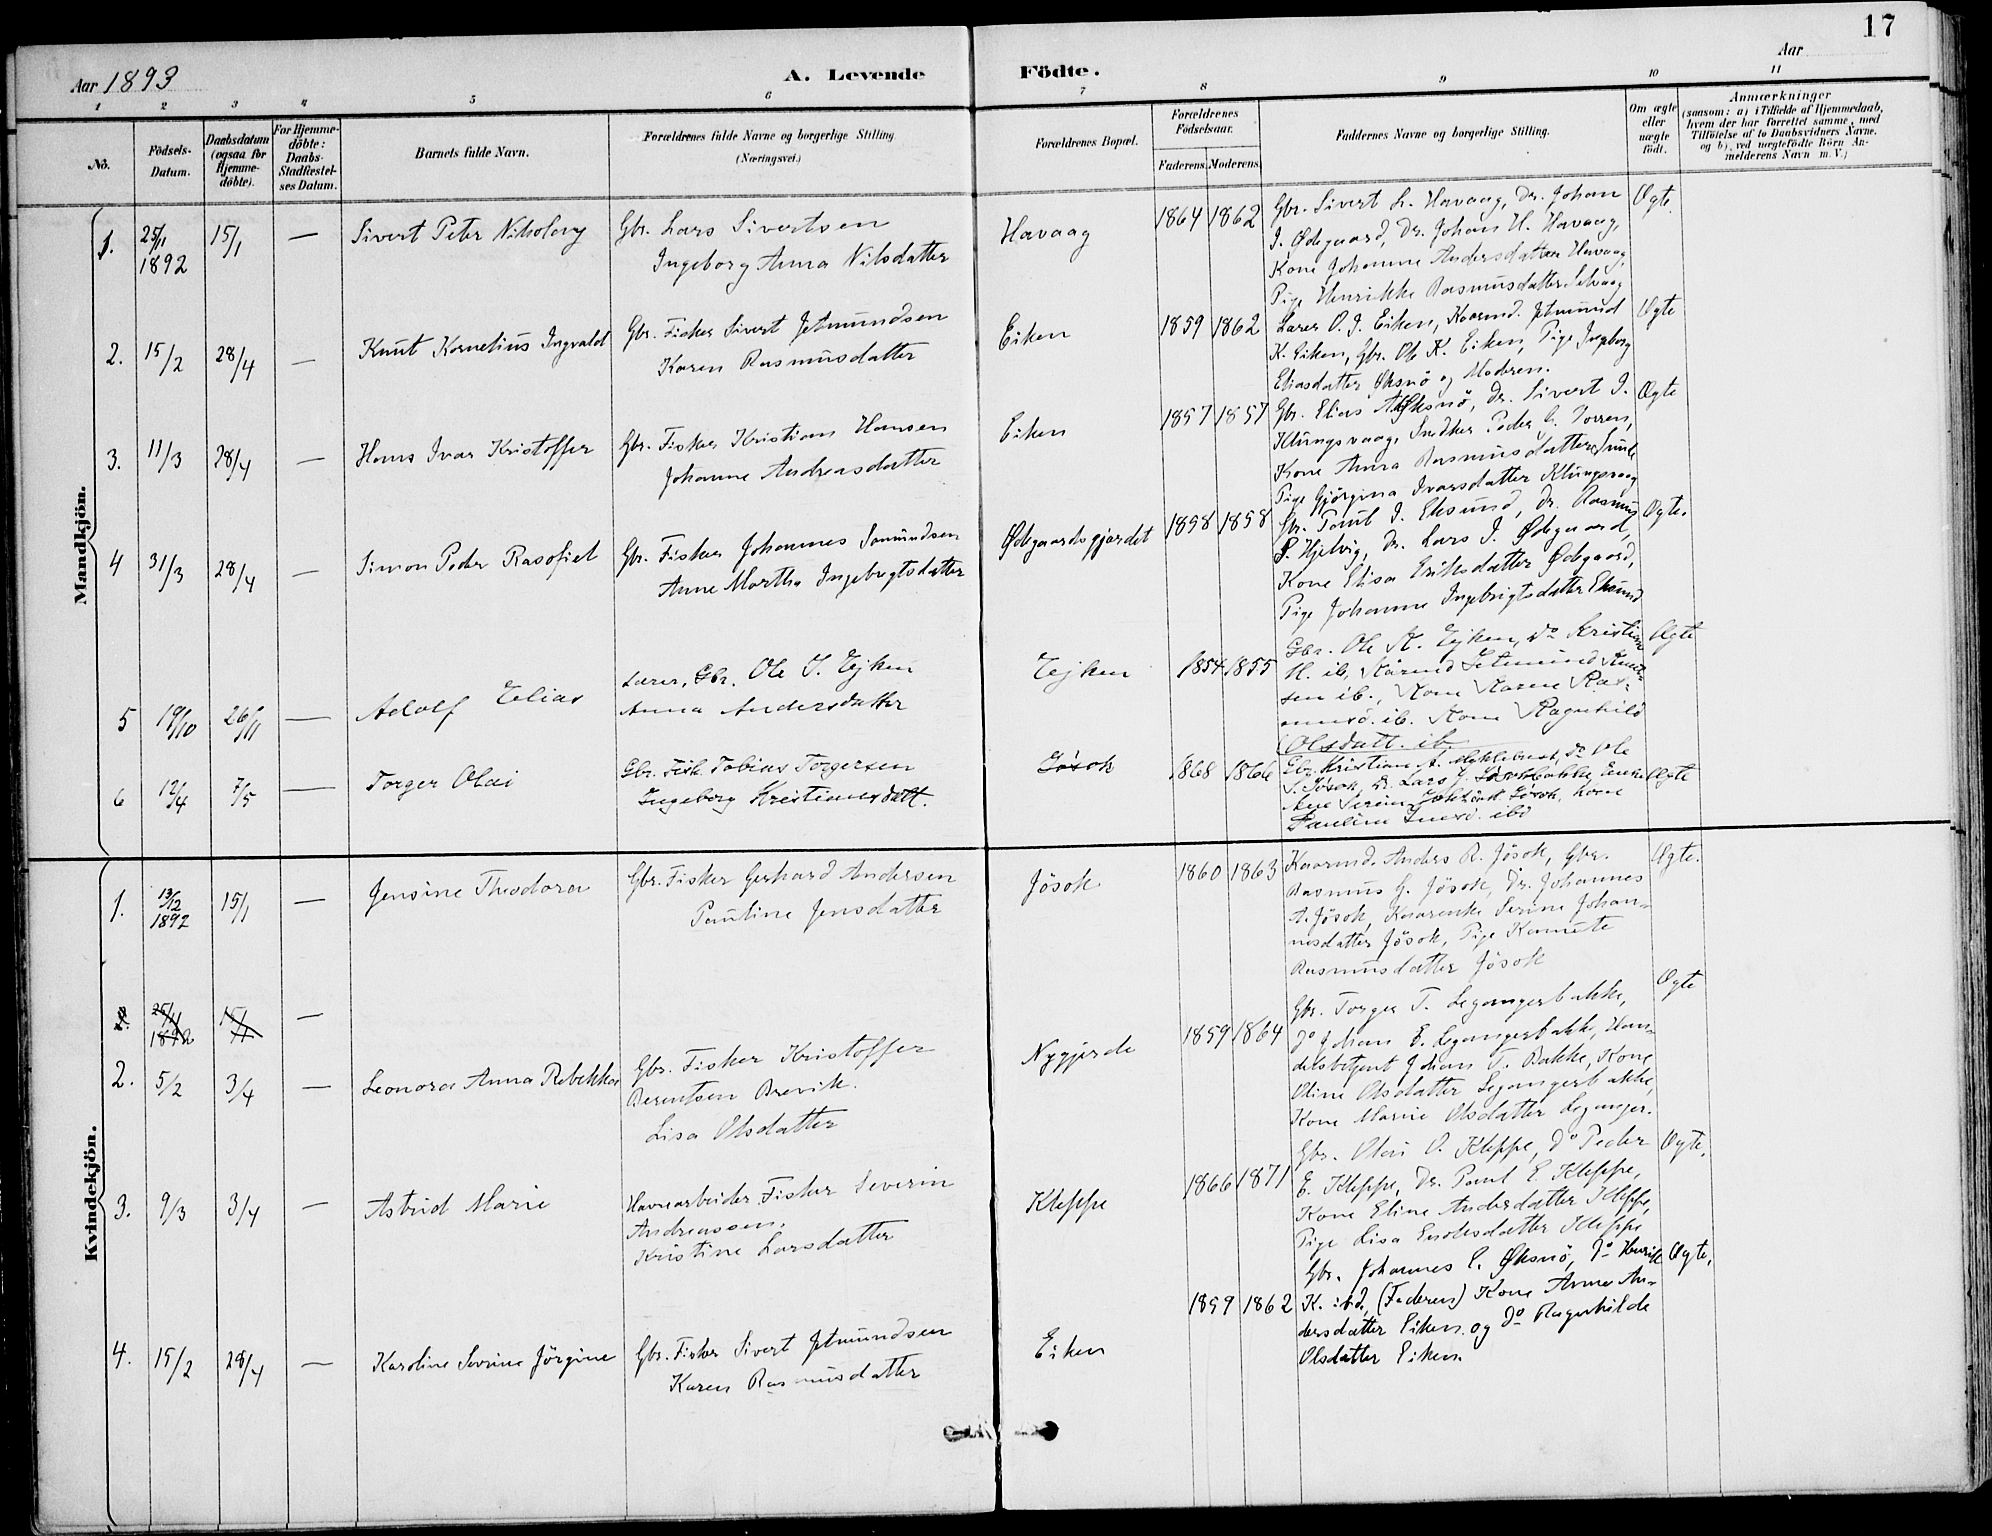 17
Aar 1893
A. Levende
Födte.
Aar
1 2 3 4 5 6 7 8 9 10 11
No.
Födsels-
Datum.
Daabsdatum
(ogsaa for
Hjemme-
döbte).
For Hjemme-
döbte:
Daabs-
Stadfæstel-
ses Datum.
Barnets fulde Navn.
Forældrenes fulde Navne og borgerlige Stilling
(Næringsvei.)
Forældrenes Bopæl.
Forældrenes
Födselsaar.
Faderens Moderens
Faddernes Navne og borgerlige Stilling.
Om ægte
eller
uægte
födt.
Anmærkninger
(saasom: a) i Tilfælde af Hjemmedaab,
hvem der har forrettet samme, med
Tilföielse af to Daabsvidners Navne.
og b), ved uægtefödte Börn An-
melderens Navn m. V.)
Mandkjön.
1.
25/11
1892
15/1
—
Sivert Peter Nikolay
Gbr. Lars Sivertsen
Ingeborg Anna Nilsdatter
Havaag
1864 1862
Gbr. Sivert L. Havaag, Do. Johan
I. Ødegaard, Do. Johan H. Havaag,
Kone Johanne Andersdatter Havaag,
Pige Henrikke Rasmusdatter Selvaag
Ægte.
2.
15/2
28/4
—
Knut Kornelius Ingvald
Gbr. Fisker Sivert Jetmundsen
Karen Rasmusdatter
Eiken
1859 1862
Lærer O. J. Eiken, Kaarmd. Jetmund
K. Eiken, Gbr. Ole K. Eiken, Pige Ingeborg
Eliasdatter Øksnö og Moderen.
Ægte
3.
11/3
28/4
—
Hans Ivar Kristoffer
Gbr. Fisker Kristian Hansen
Johanne Andreasdatter
Eiken
1857 1857
Gbr. Elias A. Øksnö, Do. Sivert I.
Klungsvaag, Snedker Peder C. Vorren,
Kone Anna Rasmusdatter
Pige Gjörgina Ivarsdatter Klungsvaag
Ægte
4
31/3
28/4
—
Simon Peder Rasofiel
Gbr. Fisker Johannes Samundsen
Anne Martha Ingebrigtsdatter
Ødegaardsgjærdet
1858 1858
Gbr. Paul I. Eksund, Do. Rasmus
P. Hjelvig, Do. Lars I. Ødegaard,
Kone Elisa Eriksdatter Ødegaard,
Pige Johanne Ingebrigtsdatter Eksund
Ægte.
5
19/10
26/11
—
Adolf Elias
Lærer, Gbr. Ole J. Ejken
Anna Andersdatter
Ejken
1854 1855
Gbr. Ole K. Ejken, do Kristian
H. ib, Kårmd Jetmund Knut-
sen ib., Kone Karen Ras-
musd. ib. Kone Ragnhild
Olsdatt. ib.
Ægte
6
12/4
7/5
—
Torger Olai
Gbr. Fisk. Tobias Torgersen
Ingeborg Kristiansdatt.
Jøsok
1868 1866
Gbr. Kristian A. Myklebust, do Ole
S. Jøsok, do. Lars J. Jøsokbakke, Enke
Ane Serine Jøsok, Kone
Pauline ibd
Ægte
Kvindekjön.
1.
13/12
1892
15/1
—
Jensine Theodora
Gbr. Fisker Gerhard Andersen
Pauline Jensdatter
Jösok
1860 1863
Kaarmd. Anders R. Jösok, Gbr.
Rasmus G. Jösok, Do. Johannes
A. Jösok, Kaarenke Serine Johan-
nesdatter Jösok, Pige
Rasmusdatter Jösok
Ægte.
2.
25/11
1892
15/1
—
2.
5/2
3/4
—
Leonora Anna Rebekka
Gbr. Fisker Kristoffer
Berentsen Brevik.
Lisa Olsdatter
Nygjerde
1859 1864
Gbr. Torger T. Legangerbakke,
Do Johan E. Legangerbakke, Han-
delsbetjent Johan T. Bakke, Kone
Oline Olsdatter Legangerbakke,
Kone Marie Olsdatter Leganger.
Ægte
3.
9/3
3/4
—
Astrid Marie
Havnearbeider, Fisker Severin
Andreassen.
Kristine Larsdatter
Kleppe
1866 1871
Gbr. Olai O. Kleppe, Do Peder
E. Kleppe, Do. Paul E. Kleppe,
Kone Eline Andersdatter Kleppe,
Pige Lisa Endresdatter Kleppe
Ægte.
4.
15/2
28/4
—
Karoline Severine Jörgine
Gbr. Fisker Sivert Jetmundsen
Karen Rasmusdatter
Eiken
1859 1862
Gbr. Johannes E. Øksnö, Do Henrik
K. ibd, (Faderen) Kone Anna An-
dersdatter Eiken og Do Ragnhilde
Olsdatter Eiken.
Ægte.